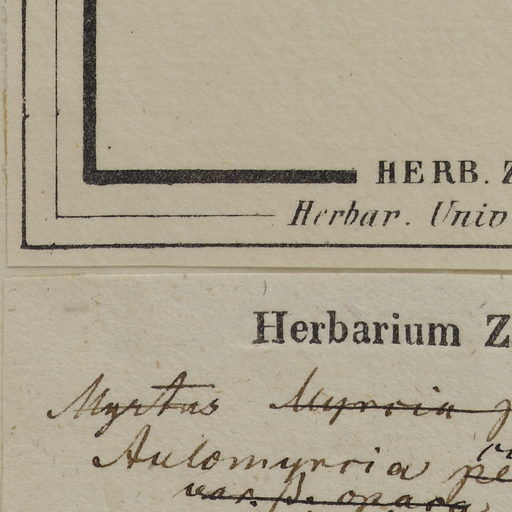 HERB. Z
Herbar. Univ
Herbarium Z
Myrtus Myrcia
Aulomyrcia pe
var. β. opaca